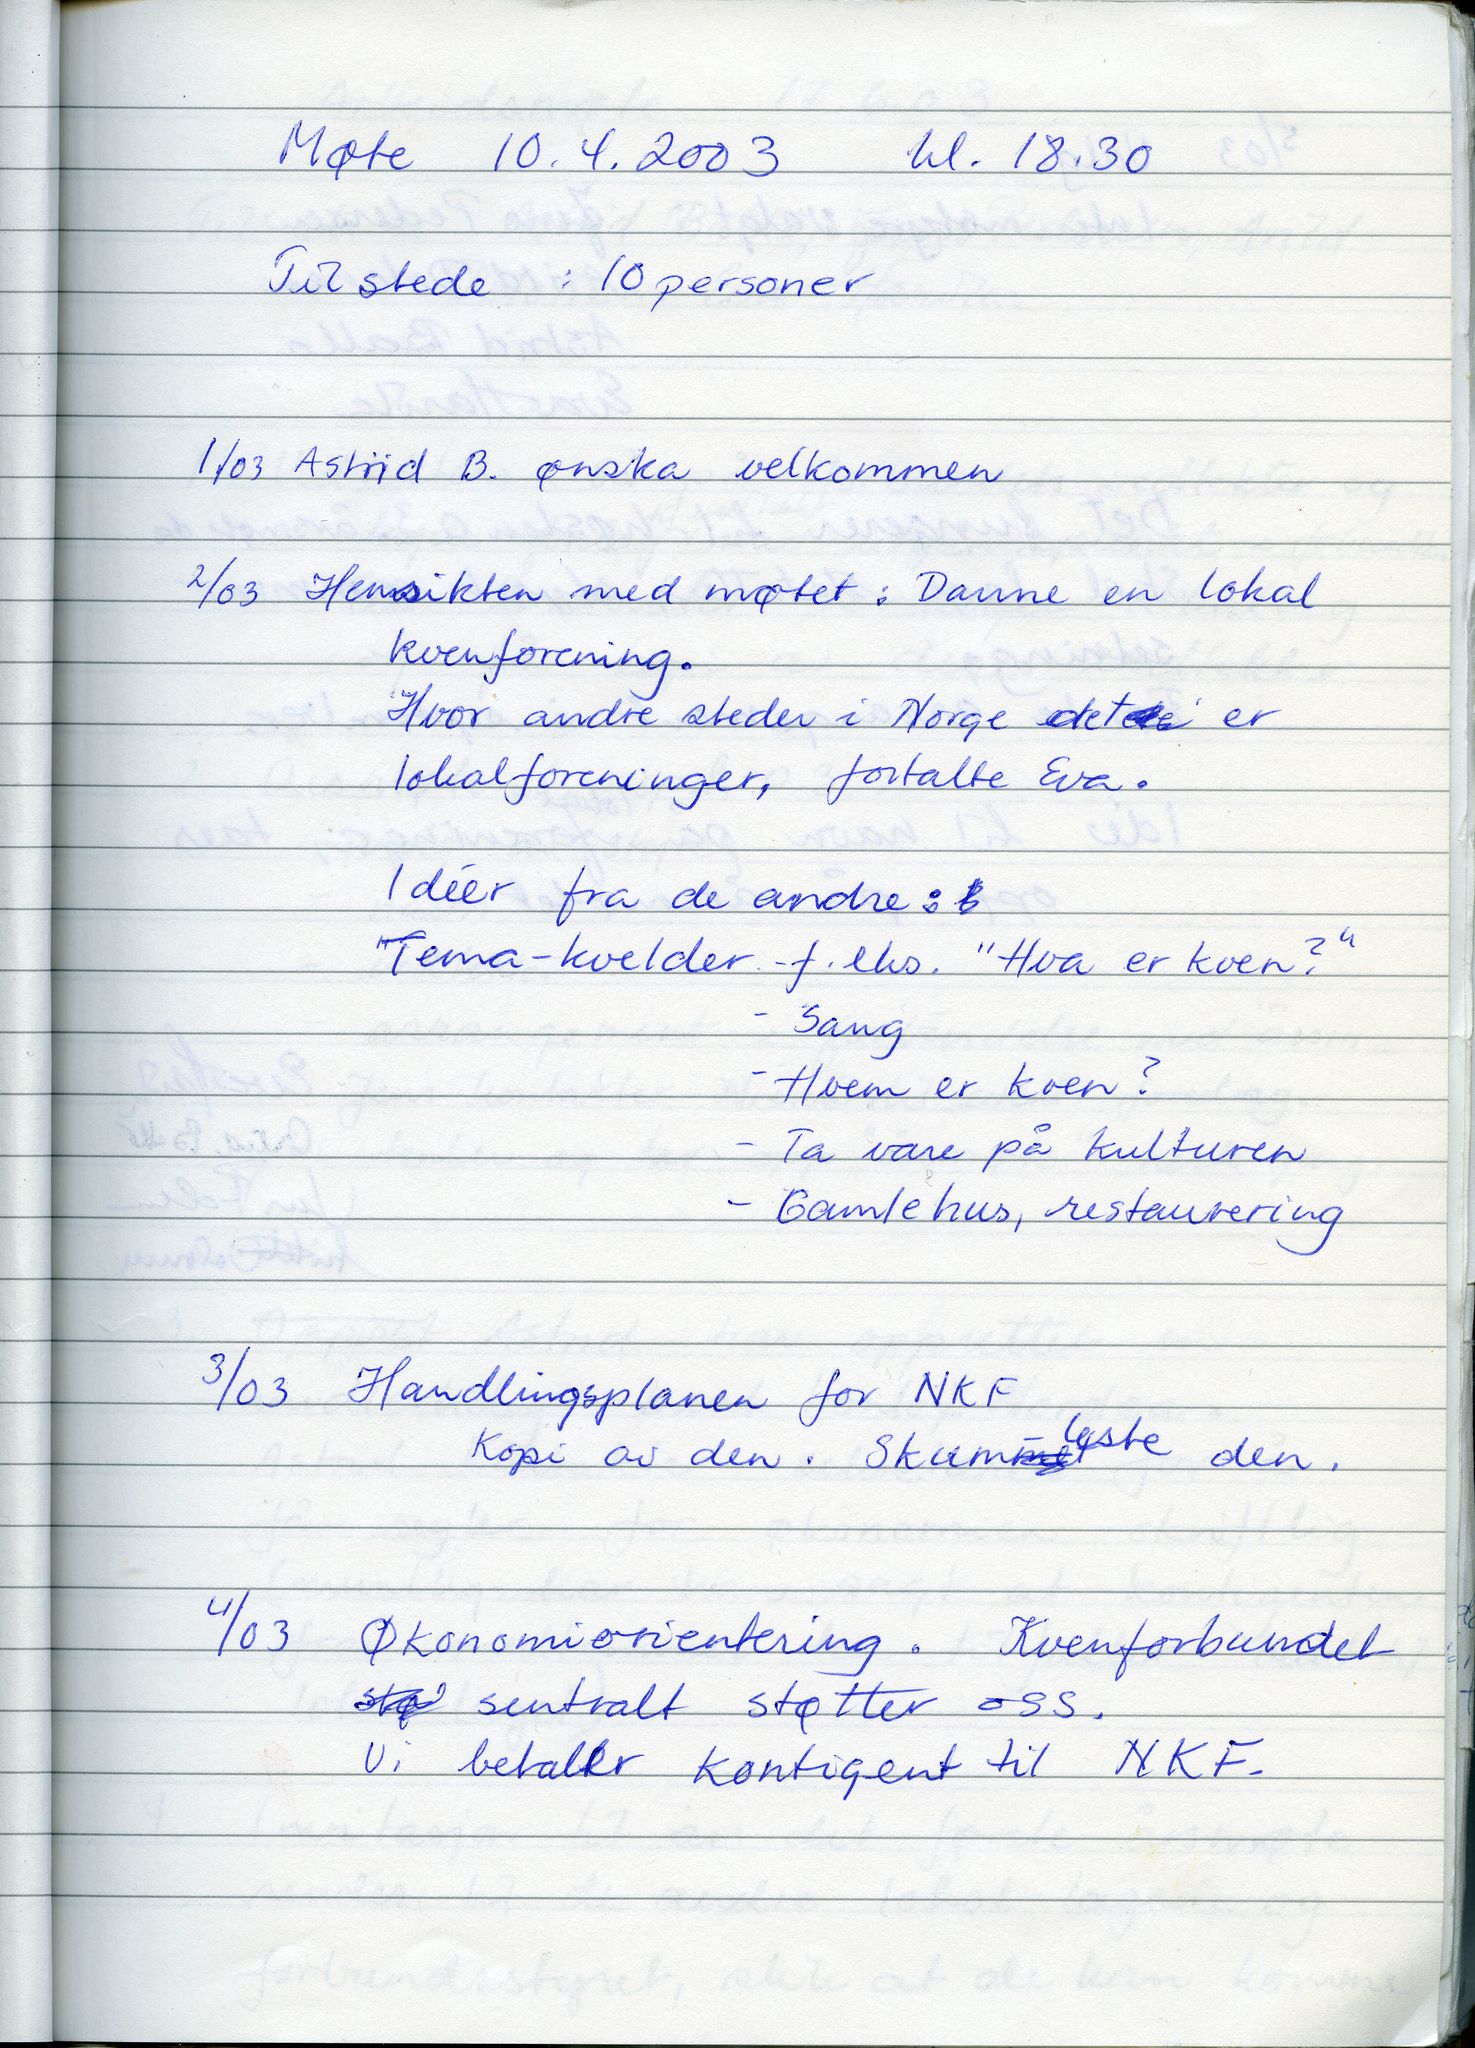 Møte 10.4.2003 kl. 18.30
Til stede : 10 personer
1/03 Astrid B. ønska velkommen
2/03 Hensikten med møtet : Danne en lokal
kvenforening.
Hvor andre steder i Norge det er
lokalforeninger, fortalte Eva.
Idéer fra de andre :
Tema-kvelder - f. eks. "Hva er kven?"
- Sang
- Hvem er kven?
- Ta vare på kulturen
- Gamle hus, restaurering
3/03 Handlingsplanen for NKF
Kopi av den. Skumleste den.
4/03 Økonomiorientering. Kvenforbundet
sentralt støtter oss.
Vi betaler kontigent til NKF.